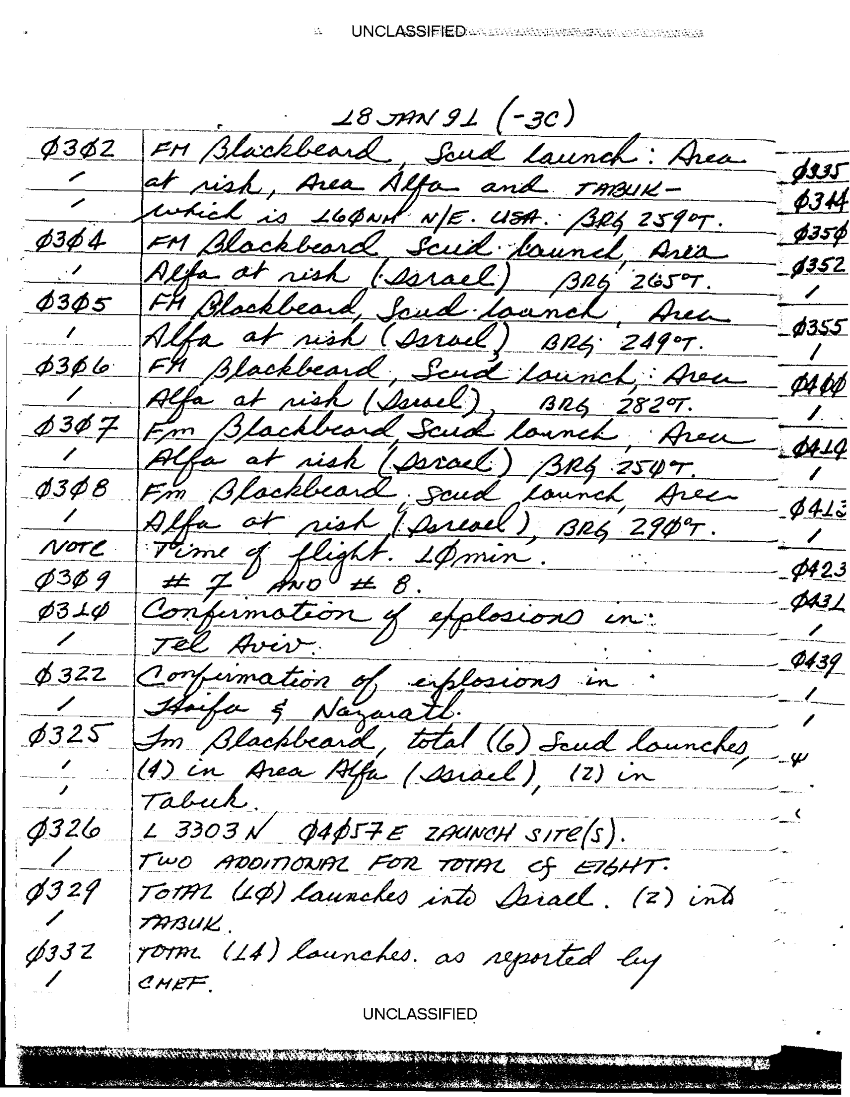 UNCLASSIFIED
18 JAN 91 (-3C)
Ø3Ø2 FM Blackbeard, Scud launch: Area
/ at risk, Area Alfa and TABUK-
/ which is 16ØNM N/E. USA. BRG 259°T.
Ø3Ø4 FM Blackbeard, Scud launch, Area
/ Alfa at risk (Israel) BRG 265°T.
Ø3Ø5 FM Blackbeard, Scud launch, Area
/ Alfa at risk (Israel) BRG 249°T.
Ø3Ø6 FM Blackbeard, Scud launch, Area
/ Alfa at risk (Israel), BRG 282°T.
Ø3Ø7 Fm Blackbeard, Scud launch, Area
/ Alfa at risk (Israel) BRG 25Ø°T.
Ø3Ø8 Fm Blackbeard, Scud launch, Area
/ Alfa at risk, (Isreael), BRG 29Ø°T.
NOTE Time of flight. 1Ømin.
Ø3Ø9 # 7 AND # 8.
Ø31Ø Confirmation of explosions in
/ Tel Aviv.
Ø322 Confirmation of explosions in
/ Haifa & Nazarath.
Ø325 Fm Blackbeard, total (6) Scud launches,
/ (4) in Area Alfa (Israel), (2) in
/ Tabuk.
Ø326 L 3303N Ø4Ø57E LAUNCH SITE(S).
/ TWO ADDITIONAL FOR TOTAL of EIGHT.
Ø329 TOTAL (1Ø) launches into Israel. (2) into
/ TABUK.
Ø332 TOTAL (14) launches. as reported by
/ CHEF.
Ø335
Ø344
Ø35Ø
Ø352
/
Ø355
/
Ø4ØØ
/
Ø41Ø
/
Ø413
/
Ø423
Ø431
/
Ø439
/
/
UNCLASSIFIED